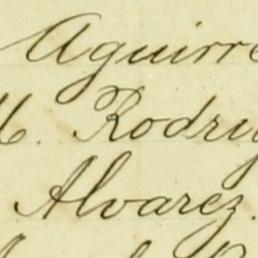 Aguirre
M. Rodrig
Alvarez.